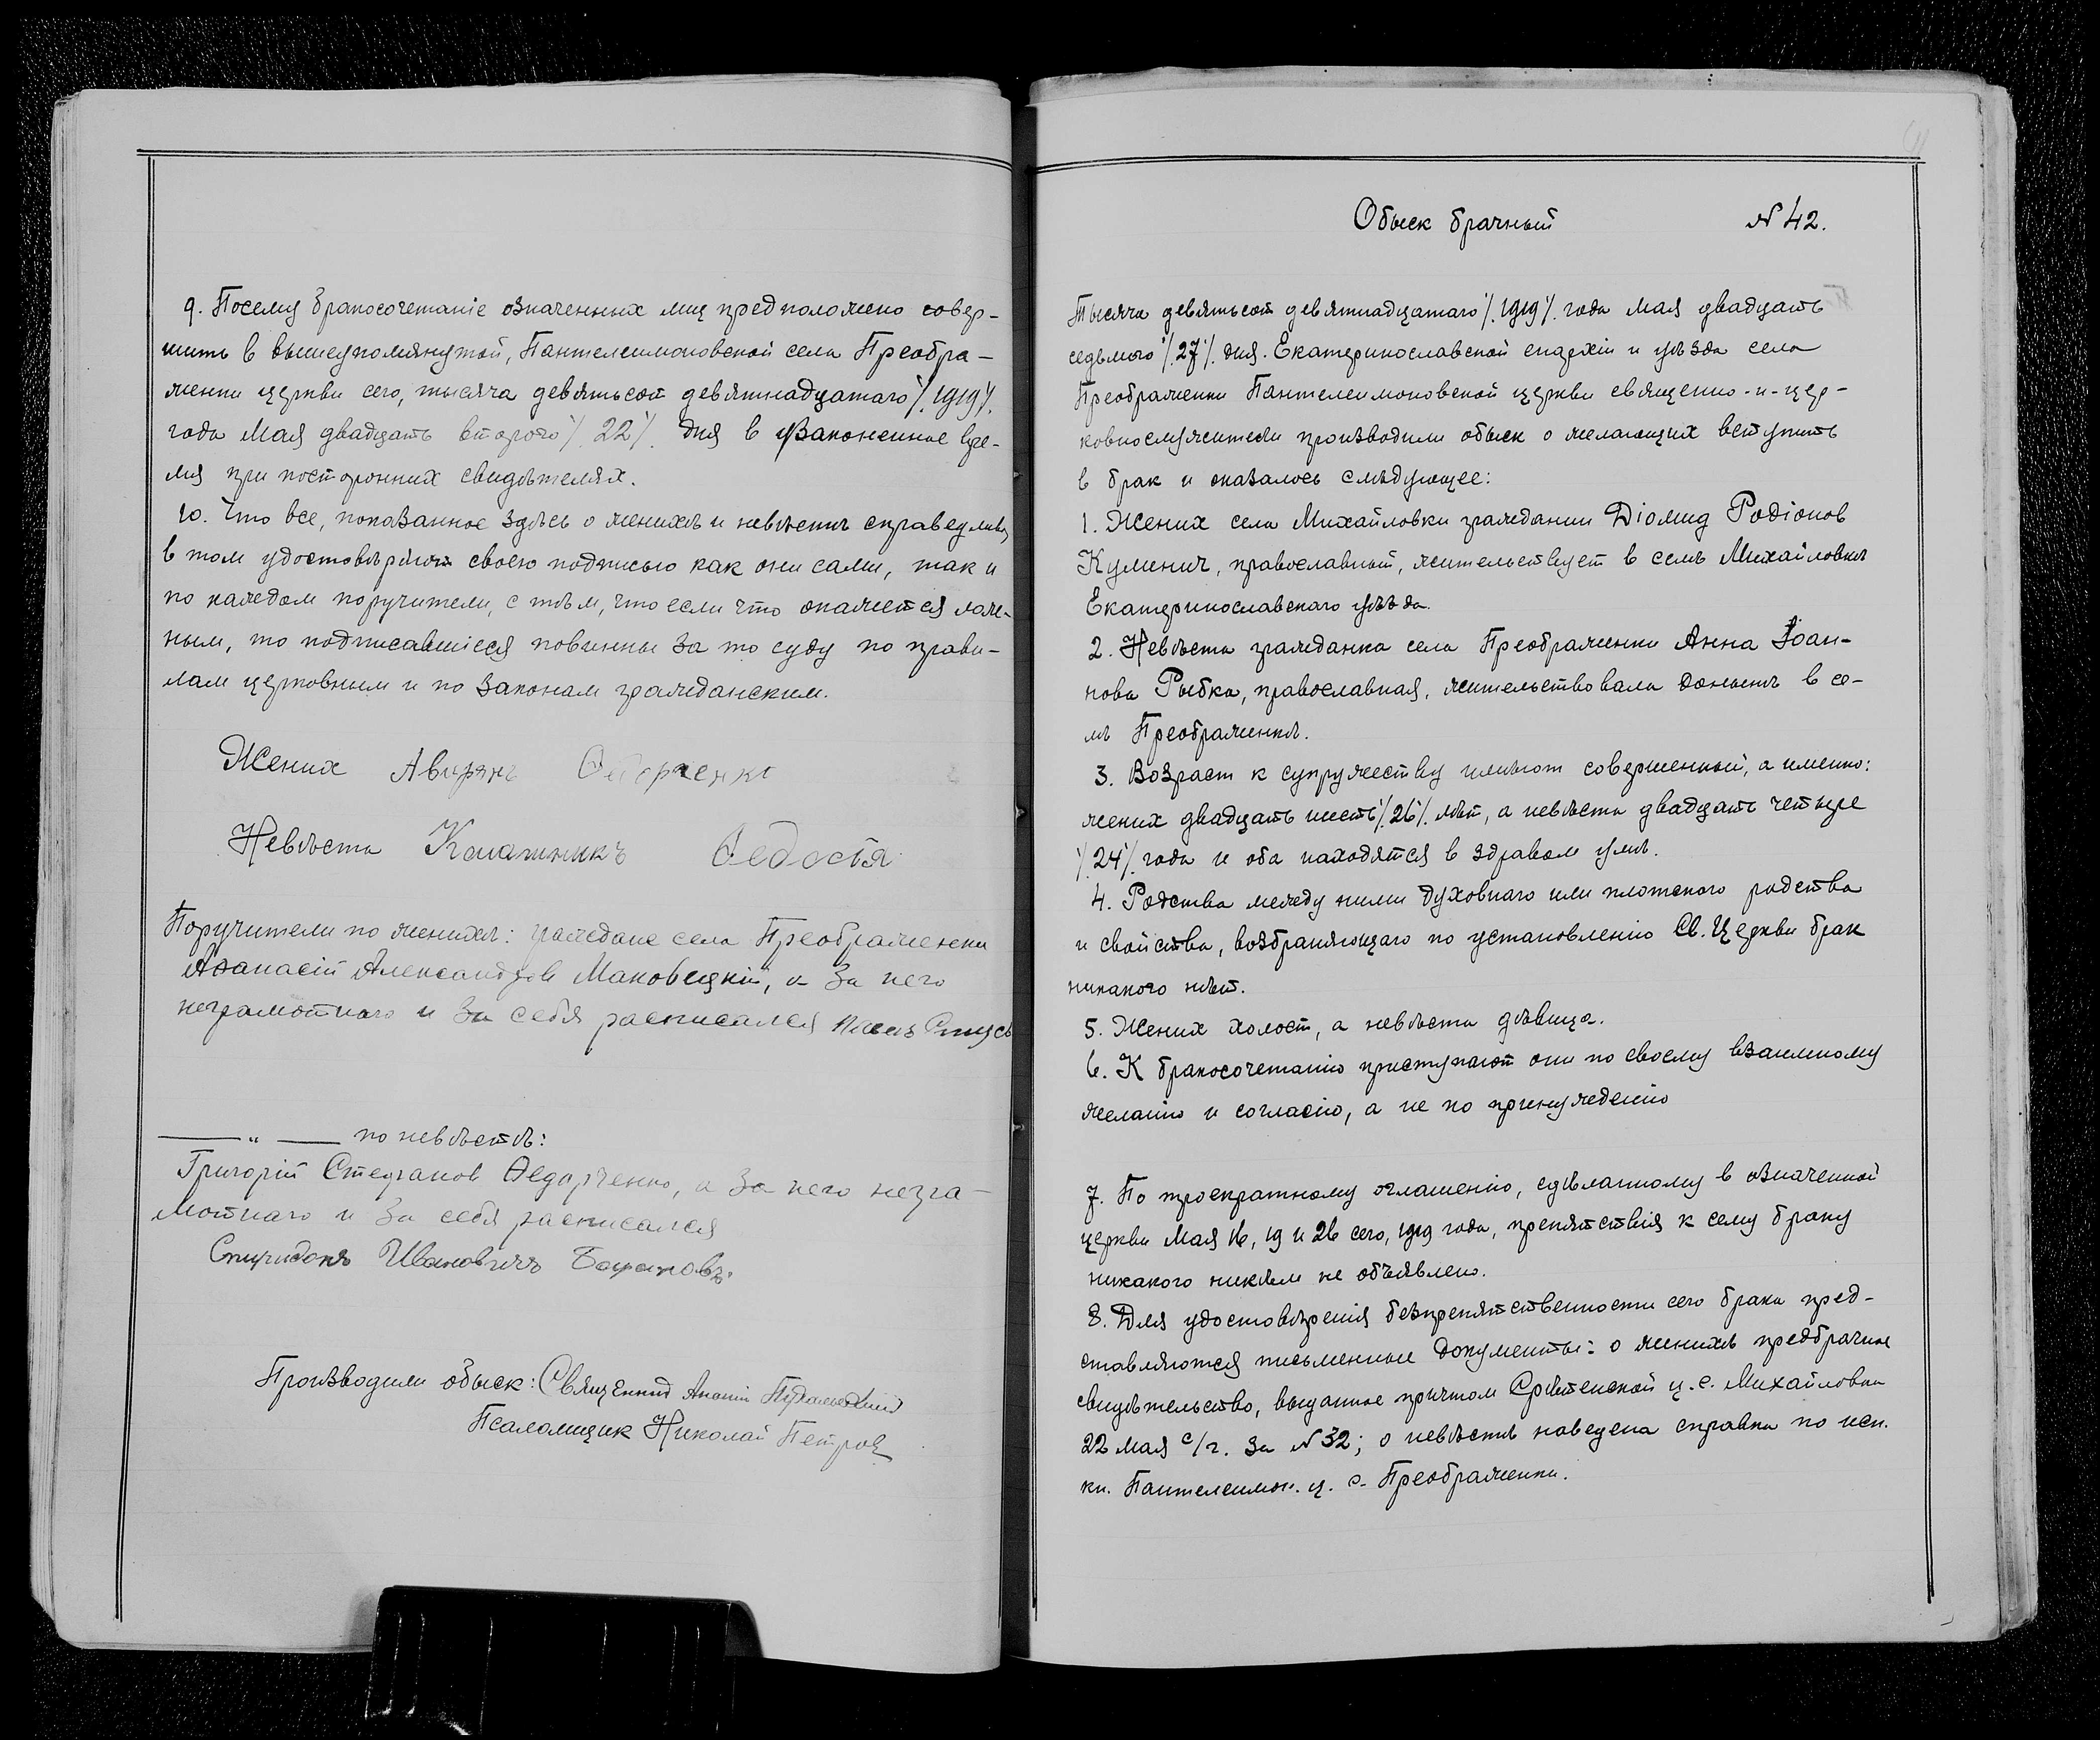 9. Посему бракосочетаніе означенных лиц предположено совер-
шить в вышеупомянутой, Пантелеимоновской села Преобра-
женки церкви сего, тысяча девятьсот девятнадцатаго /.1919/.
года Мая двадцать второго /.22/. дня в узаконенное вре-
мя при посторонних свидѣтелях.
10. Что все, показанное здѣсь о женихѣ и невѣстѣ справедливо,
в том удостовѣряют своею подписью как они сами, так и
по каждом поручители, с тѣм, что если что окажется лож-
ным, то подписавшіеся повинны за то суду по прави-
лам церковным и по законам гражданским.
Жених
Невѣста Калашникъ Ѳедосія
Поручители по женихѣ: граждане села Преображенки
Аѳанасій Александров Маковецкій, а за него
неграмотнаго и за себя расписался
— " — по невѣстѣ:
Григорій Стефанов Ѳедорченко, а за него негра-
мотнаго и за себя расписался
Спиридонъ Ивановичъ
Производили обыск: Священник Ананій
Псаломщик Николай Петров
Обыск брачный № 42.
Тысяча девятьсот девятнадцатаго /.1919/. года мая двадцать
седьмого /.27/. дня. Екатеринославской епархіи и уѣзда села
Преображенки Пантелеимоновской церкви священно-и-цер-
ковнослужители производили обыск о желающих вступить
в брак и оказалось слѣдующее:
1. Жених села Михайловки гражданин Діомид Родіонов
православный, жительствует в селѣ Михайловкѣ
Екатеринославскаго уѣзда.
2. Невѣста гражданка села Преображенки Анна Іоан-
нова Рыбка, православная, жительствовала донынѣ в се-
лѣ Преображенкѣ.
3. Возраст к супружеству имѣют совершенный, а именно:
жених двадцать шесть /.26/. лѣт, а невѣста двадцать четыре
/.24/. года и оба находятся в здравом умѣ.
4. Родства между ними духовнаго или плотского родства
и свойства, возбраняющаго по установленію Св. Церкви брак
никакого нѣт.
5. Жених холост, а невѣста дѣвица.
6. К бракосочетанію приступают они по своему взаимному
желанію и согласію, а не по принужденію
7. По троекратному оглашенію, сдѣланному в означенной
церкви мая 16, 19 и 26 сего, 1919 года, препятствія к сему браку
никакого никѣм не объявлено.
8. Для удостовѣренія безпрепятственности сего брака пред-
ставляются письменные документы: о женихѣ предбрачное
свидѣтельство, выданное причтом Срѣтенской ц. с. Михайловки
22 мая с/г. за № 32; о невѣстѣ наведена справка по исп.
кн. Пантелеимон. ц. с. Преображенки.